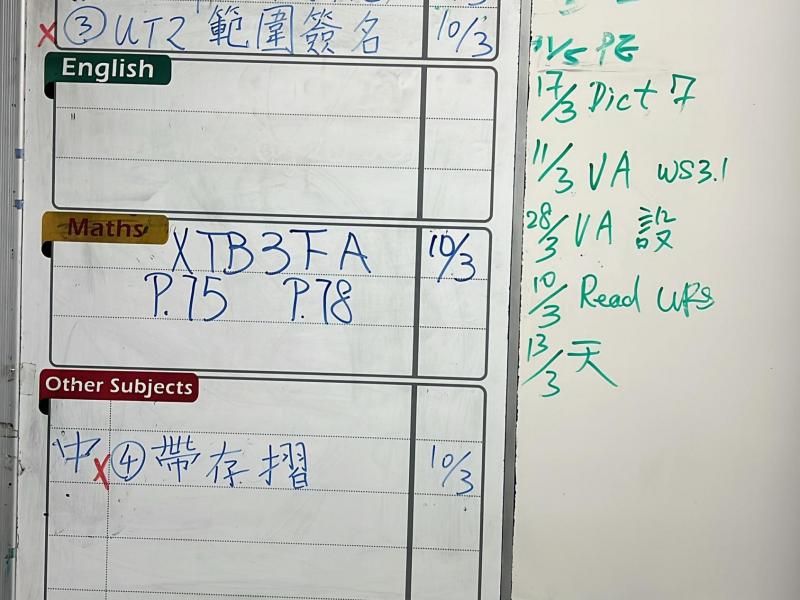 x ③ UT2 範圍簽名 10/3
English
Maths
XTB3下A 10/3
P.75 P.78
Other Subjects
中 x ④ 帶存摺 10/3
PE
17/3 Dict 7
11/3 VA WS3.1
28/3 VA 設
10/3 Read
13/3 天